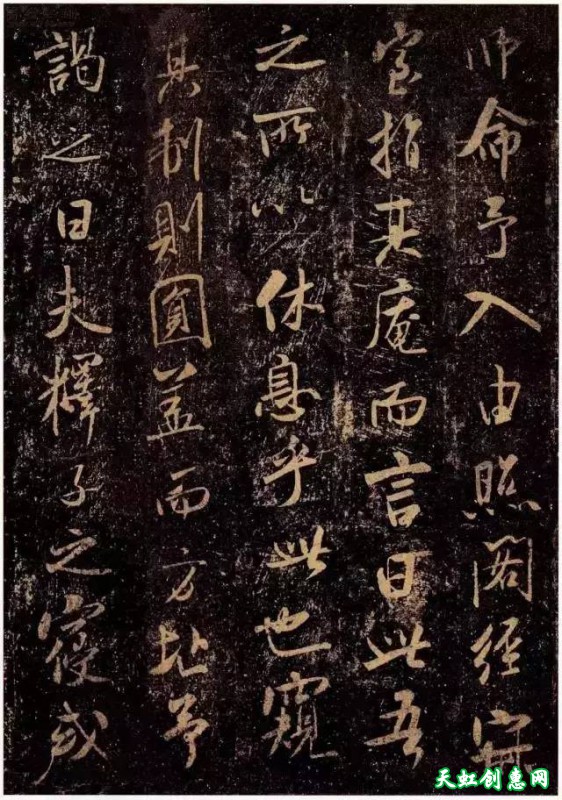 師命予入由照閣經寂
室指其庵而言曰此吾
之所以休息乎此也窺
其制則圓蓋而方址予
謁之曰夫釋子之寢或
天虹创惠网